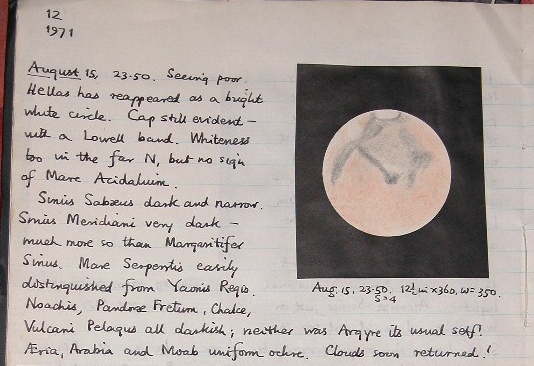 12
1971
August 15, 23.50. Seeing poor.
Hellas has reappeared as a bright
white circle. Cap still evident –
with a Lowell band. Whiteness
too in the far N, but no sign
of Mare Acidalium.
Sinus Sabæus dark and narrow.
Sinus Meridiani very dark –
much more so than Margaritifer
Sinus. Mare Serpentis easily
distinguished from Yaonis Regio.
Noachis, Pandoræ Fretum, Chalce,
Vulcani Pelagus all darkish; neither was Argyre its usual self!
Æria, Arabia and Moab uniform ochre. Clouds soon returned!
Aug. 15, 23.50. 12½ in x360. W=350.
S=4